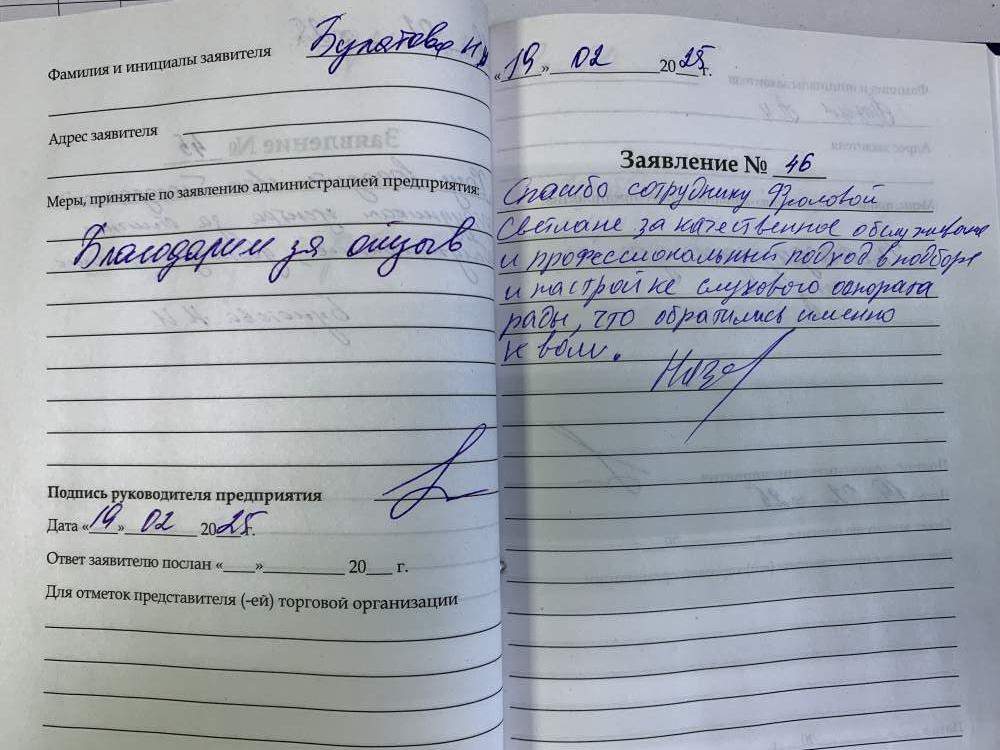 Фамилия и инициалы заявителя Булатова Н
Адрес заявителя
Меры, принятые по заявлению администрацией предприятия:
Благодарим за отзыв
Подпись руководителя предприятия
Дата «19» 02 2025г.
Ответ заявителю послан «____»__________ 20___ г.
Для отметок представителя (-ей) торговой организации
«19» 02 2025г.
Заявление № 46
Спасибо сотруднику Фроловой
Светлане за качественное обслуживание
и профессиональный подход в подборе
и настройке слухового аппарата
рады, что обратились именно
к вам.